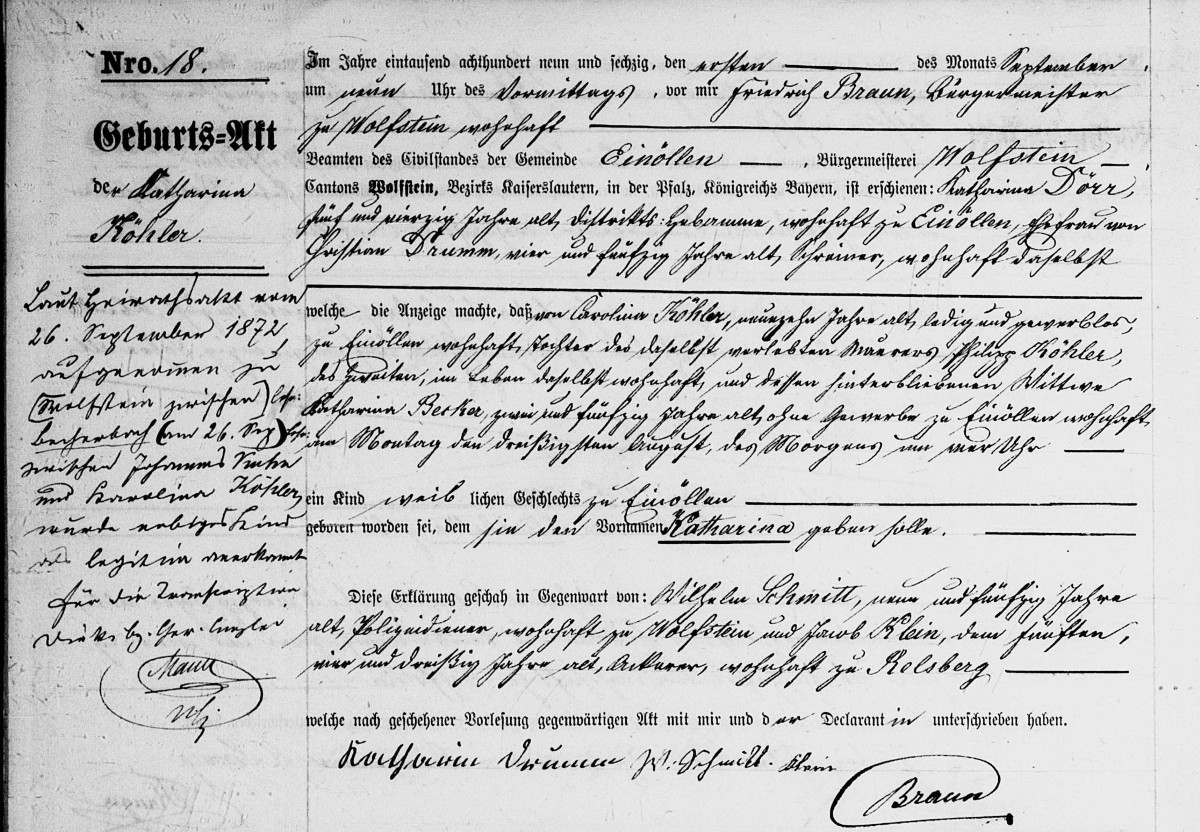 Nro. 18.
Geburts=Akt
der Katharina
Köhler.
Laut Heirathsakt vom
26. September 1872,
aufgenommen zu
(Wolfstein zwischen)
becherbach (am 26. Sep)
zwischen Johannes
und Karolina Köhler,
wurde obiges Kind
als legitim anerkannt
Für die Transcription
Die k. bz. Ger. Canzlei
Im Jahre eintausend achthundert neun und sechzig, den ersten des Monats September,
um neun Uhr des Vormittags, vor mir Friedrich Braun, Bürgermeister
zu Wolfstein wohnhaft
Beamten des Civilstandes der Gemeinde Einöllen, Bürgermeisterei Wolfstein
Cantons Wolfstein, Bezirks Kaiserslautern, in der Pfalz, Königreichs Bayern, ist erschienen: Katharina Dörr,
fünf und vierzig Jahre alt, Distrikts: Hebamme, wohnhaft zu Einöllen, Ehefrau von
Christian Drumm, vier und fünfzig Jahre alt, Schreiner, wohnhaft daselbst
welche die Anzeige machte, daß von Carolina Köhler, neunzehn Jahre alt, ledig und gewerblos,
zu Einöllen wohnhaft, Tochter des daselbst verlebten Maurers Philipp Köhler,
des zweiten, im Leben daselbst wohnhaft, und dessen hinterbliebenen Wittwe
Katharina Becker, zwei und fünfzig Jahre alt, ohne Gewerbe zu Einöllen wohnhaft,
am Montag den dreißigsten August, des Morgens um vier Uhr
ein Kind weib lichen Geschlechts zu Einöllen
geboren worden sei, dem sie den Vornamen Katharina geben solle.
Diese Erklärung geschah in Gegenwart von: Wilhelm Schmitt, neun und fünfzig Jahre
alt, Polizeidiener, wohnhaft zu Wolfstein und Jacob Klein, dem fünften,
vier und dreißig Jahre alt, Ackerer, wohnhaft zu Relsberg
welche nach geschehener Vorlesung gegenwärtigen Akt mit mir und der Declarantin unterschrieben haben.
Katharin Drumm W. Schmitt. Klein
Braun